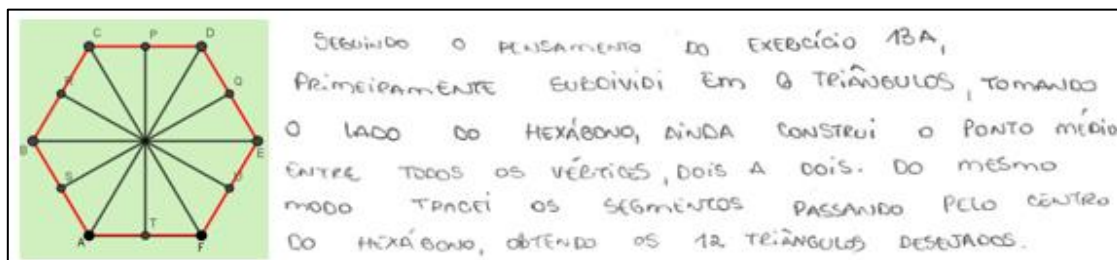 C P D
R Q
B E
S U
A T F
SEGUINDO O PENSAMENTO DO EXERCÍCIO 13A,
PRIMEIRAMENTE SUBDIVIDI EM 6 TRIÂNGULOS, TOMANDO
O LADO DO HEXÁGONO, AINDA CONSTRUI O PONTO MÉDIO
ENTRE TODOS OS VÉRTICES, DOIS A DOIS. DO MESMO
MODO TRACEI OS SEGMENTOS PASSANDO PELO CENTRO
DO HEXÁGONO, OBTENDO OS 12 TRIÂNGULOS DESEJADOS.